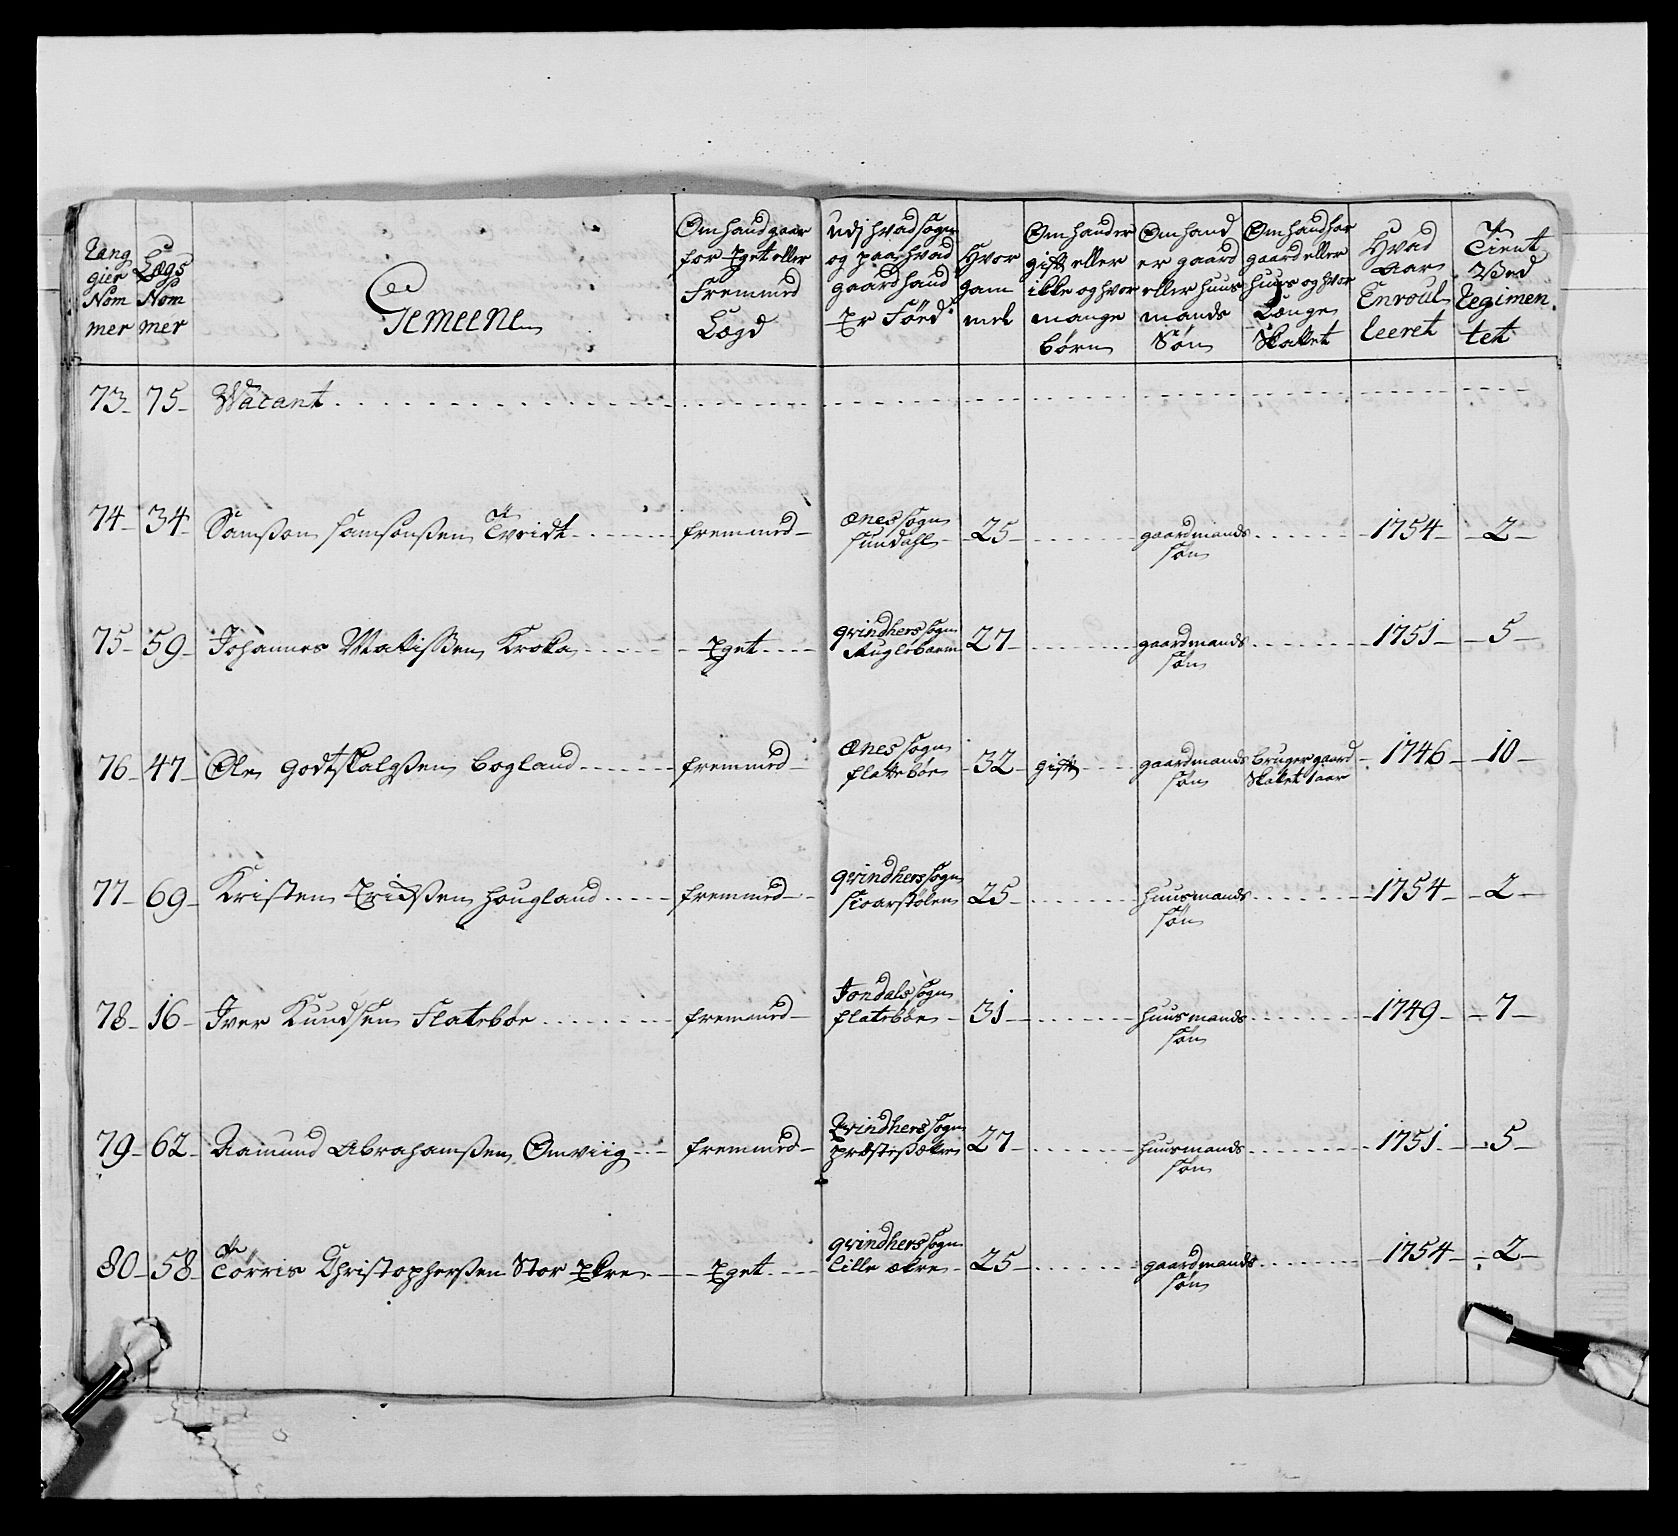 Rang gier Nom mer
Lægs Nom mer
Gemeene
Om hand gaar for Eget eller Fremmed Lægd
Udj hvad sogn og paa hvad gaard hand Er Föed
Hvor gam mel
Om hand er gift eller ikke og hvor mange börn
Om hand er gaard eller huus mands Sön
Om hand har gaard eller huus og hvor Længe Skattet
Hvad Aar Enroul leeret
Tient Ved Regimen tet
73 75 Vacant
74 34 Samsson Samsonssen Tvridt fremmed Ænes sogn Sundahl 25 gaardmands sön 1754 2
75 59 Johannes Matissen Kroka Eget qvindhers sogn Auglebarm 27 gaardmands sön 1751 5
76 47 Ole godtskalgssen bogland fremmed Ænes sogn flattebøe 32 gift gaardmands sön bruger gaard Skattet 1 aar 1746 10
77 69 Kristen Erichssen hougland fremmed qvindhers sogn Sioarstølen 25 huusmands sön 1754 2
78 16 Iver Knudsen Flatebøe fremmed Jondals sogn flatebøe 31 huusmands sön 1749 7
79 62 Aamund Abrahamssen Omviig fremmed Qvindhers sogn præstessækre 27 huusmands sön 1751 5
80 58 Törris Christopherssen Stor Ekre Eget qvindhers sogn lille ækre 25 gaardmands sön 1754 2